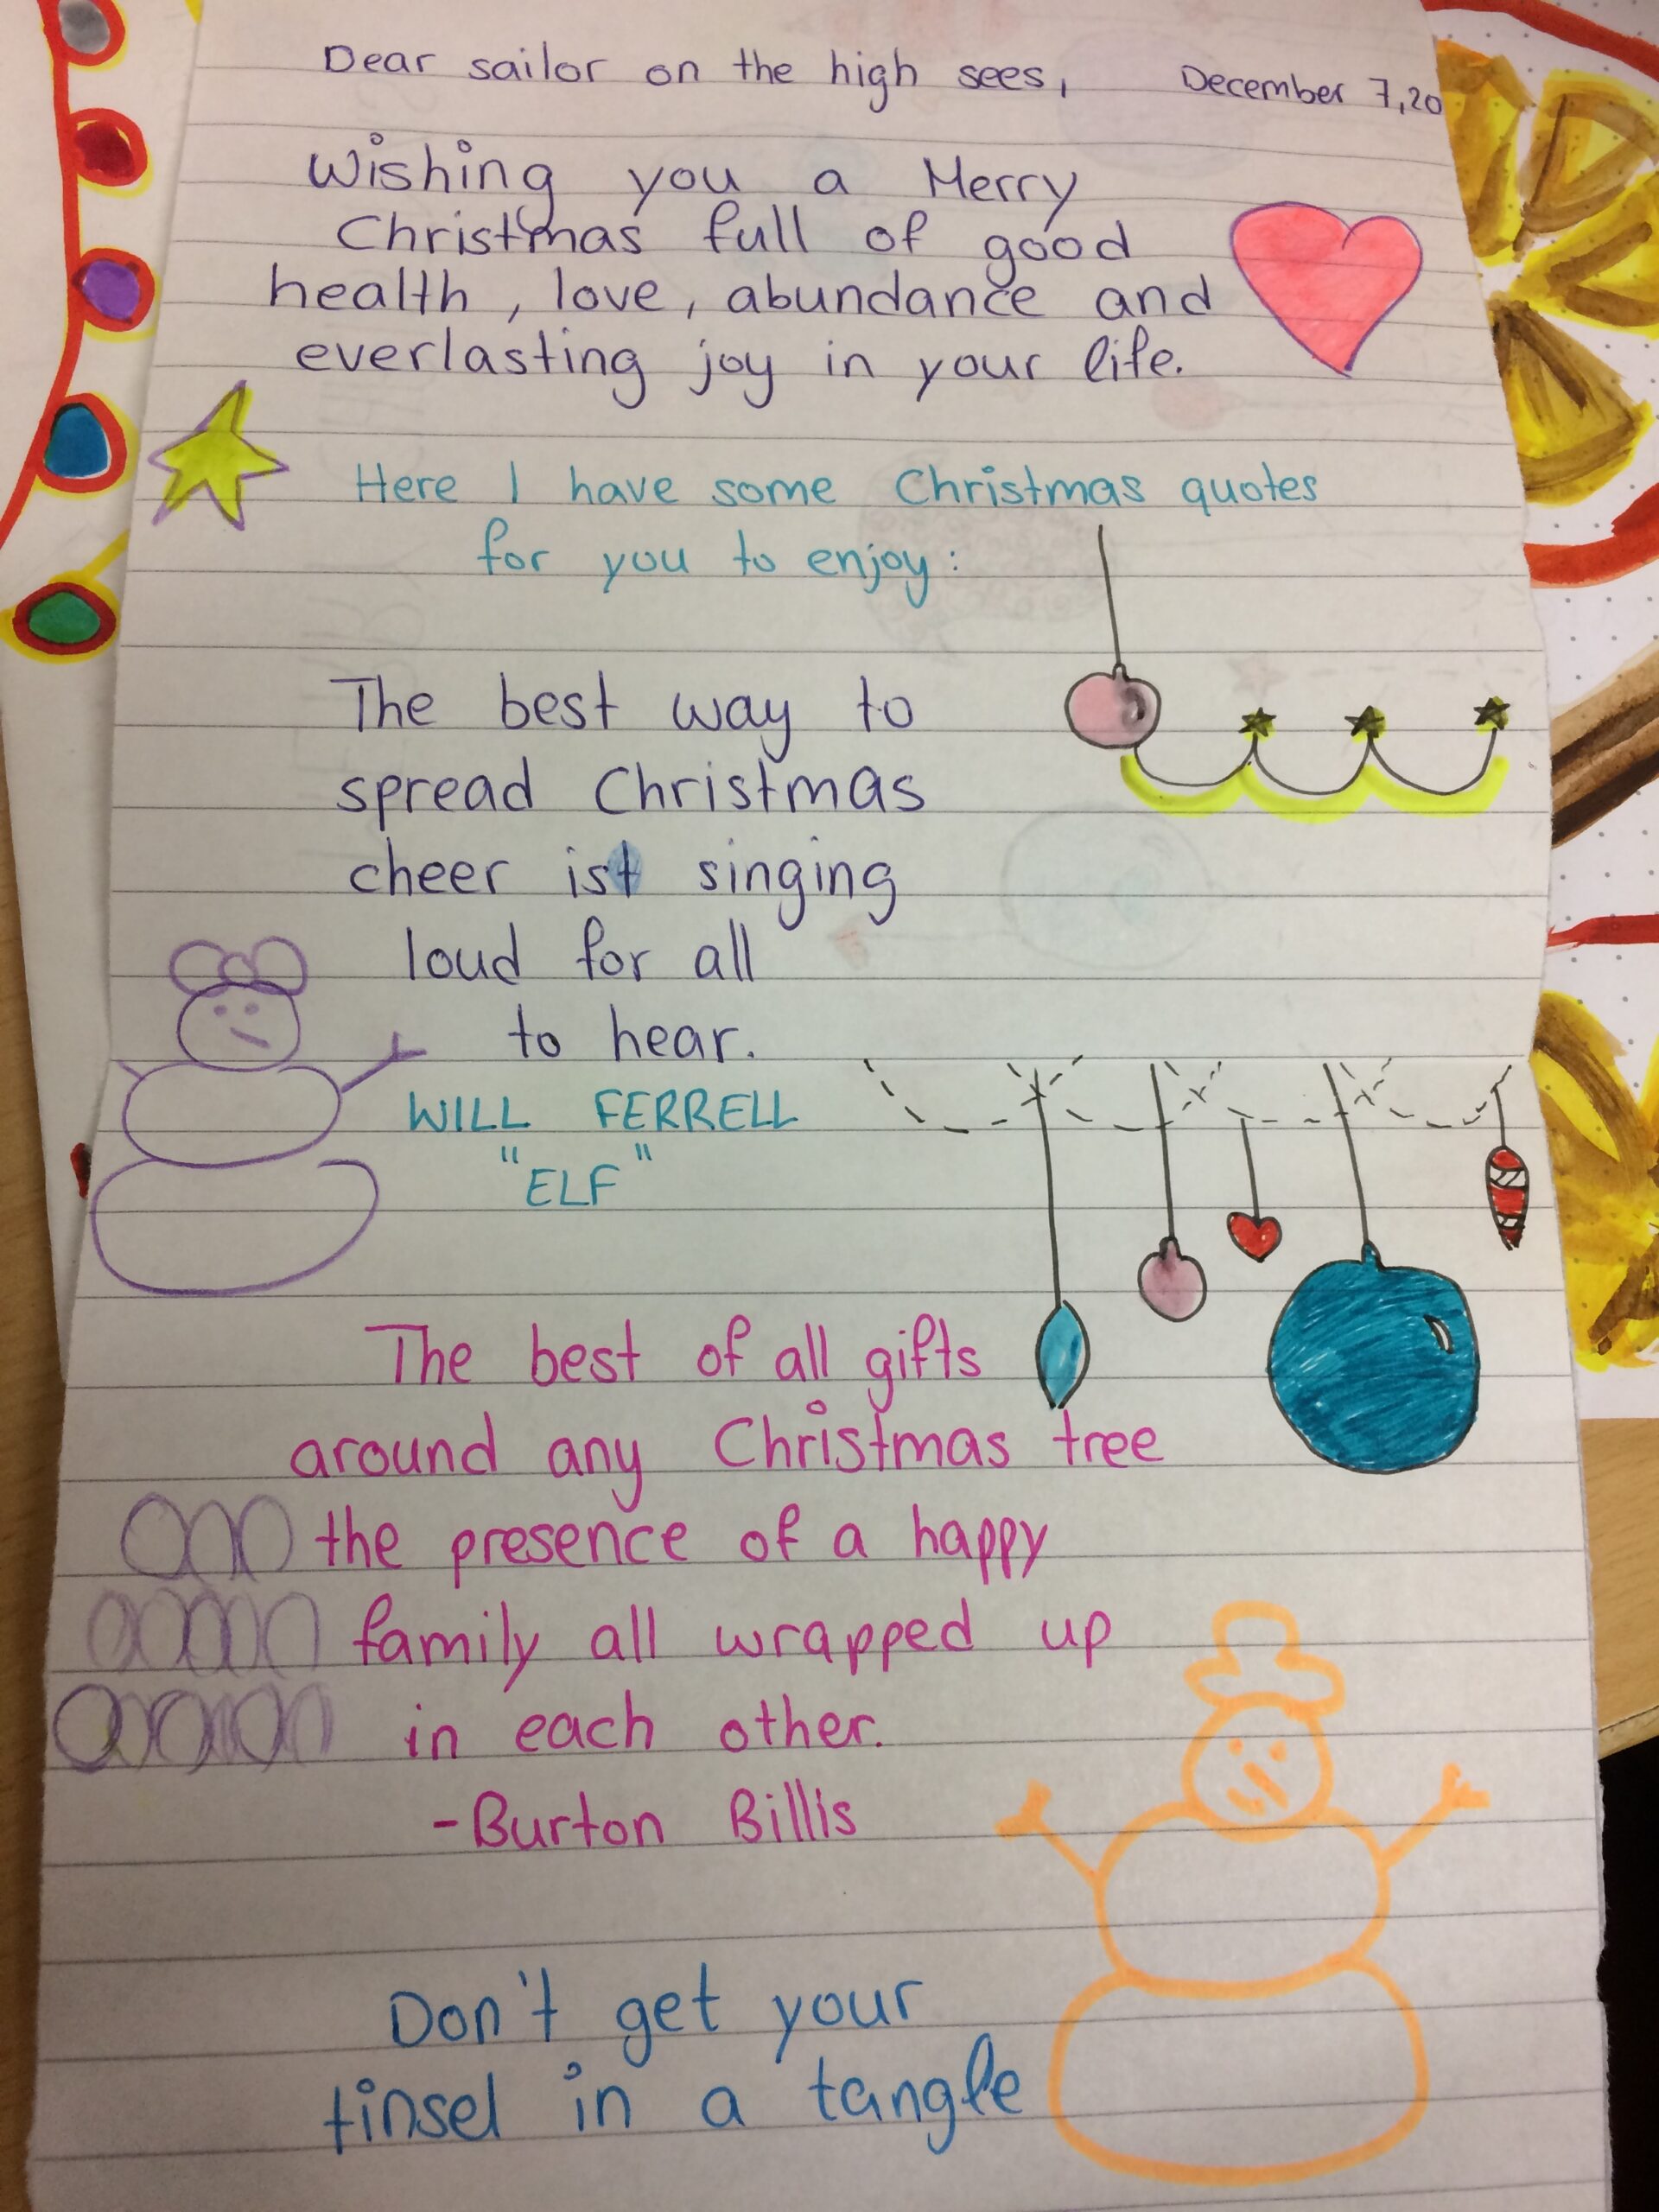 Dear sailor on the high sees, December 7, 20
Wishing you a Merry
Christmas full of good
health, love, abundance and
everlasting joy in your life.
Here I have some Christmas quotes
for you to enjoy:
The best way to
spread Christmas
cheer ist singing
loud for all
to hear.
WILL FERRELL
"ELF"
The best of all gifts
around any Christmas tree
the presence of a happy
family all wrapped up
in each other.
-Burton Billis
Don't get your
tinsel in a tangle